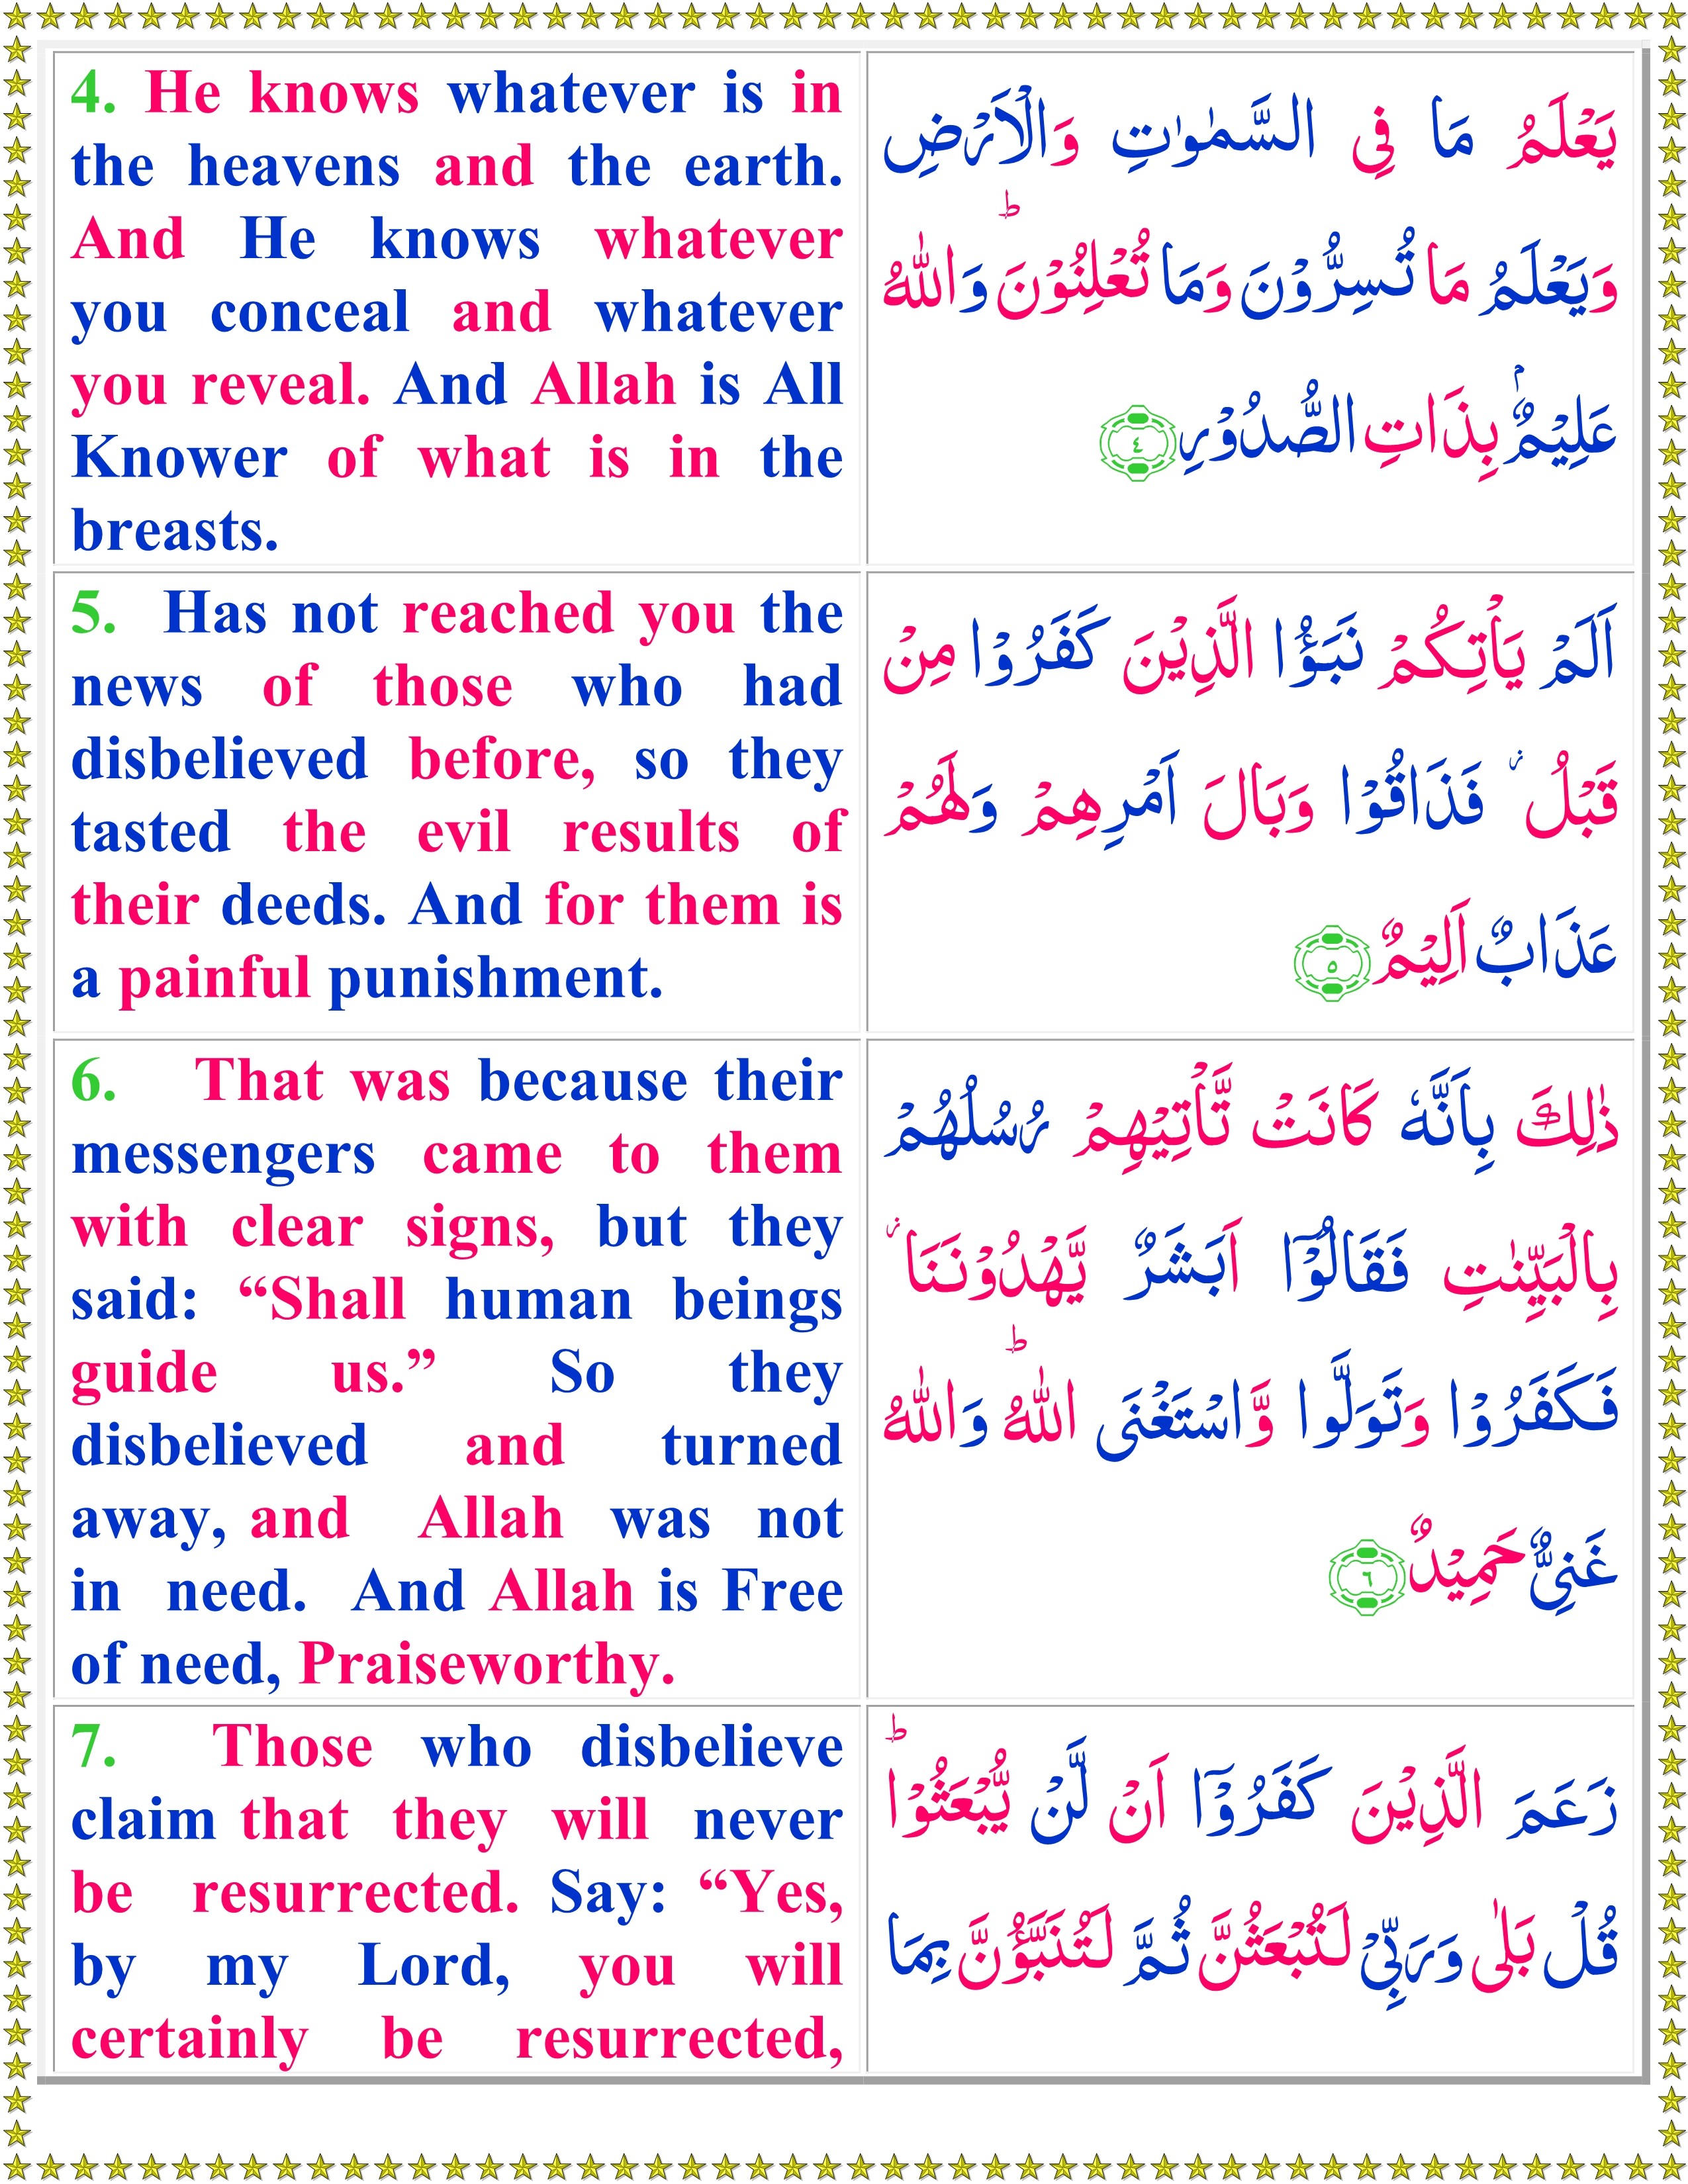 4. He knows whatever is in
the heavens and the earth.
And He knows whatever
you conceal and whatever
you reveal. And Allah is All
Knower of what is in the
breasts.
يَعْلَمُ مَا فِى السَّمٰوٰتِ وَالْاَرْضِ
وَيَعْلَمُ مَا تُسِرُّوْنَ وَمَا تُعْلِنُوْنَ ؕ وَاللّٰهُ
عَلِيْمٌۢ بِذَاتِ الصُّدُوْرِ ٤
5. Has not reached you the
news of those who had
disbelieved before, so they
tasted the evil results of
their deeds. And for them is
a painful punishment.
اَلَمْ يَاْتِكُمْ نَبَؤُا الَّذِيْنَ كَفَرُوْا مِنْ
قَبْلُ ؗ فَذَاقُوْا وَبَالَ اَمْرِهِمْ وَلَهُمْ
عَذَابٌ اَلِيْمٌ ٥
6. That was because their
messengers came to them
with clear signs, but they
said: “Shall human beings
guide us.” So they
disbelieved and turned
away, and Allah was not
in need. And Allah is Free
of need, Praiseworthy.
ذٰلِكَ بِاَنَّهٗ كَانَتْ تَّاْتِيْهِمْ رُسُلُهُمْ
بِالْبَيِّنٰتِ فَقَالُوْۤا اَبَشَرٌ يَّهْدُوْنَنَا ؗ
فَكَفَرُوْا وَتَوَلَّوا وَّاسْتَغْنَى اللّٰهُ ؕ وَاللّٰهُ
غَنِىٌّ حَمِيْدٌ ٦
7. Those who disbelieve
claim that they will never
be resurrected. Say: “Yes,
by my Lord, you will
certainly be resurrected,
زَعَمَ الَّذِيْنَ كَفَرُوْۤا اَنْ لَّنْ يُّبْعَثُوْا ؕ
قُلْ بَلٰى وَرَبِّىْ لَتُبْعَثُنَّ ثُمَّ لَتُنَبَّؤُنَّ بِمَا